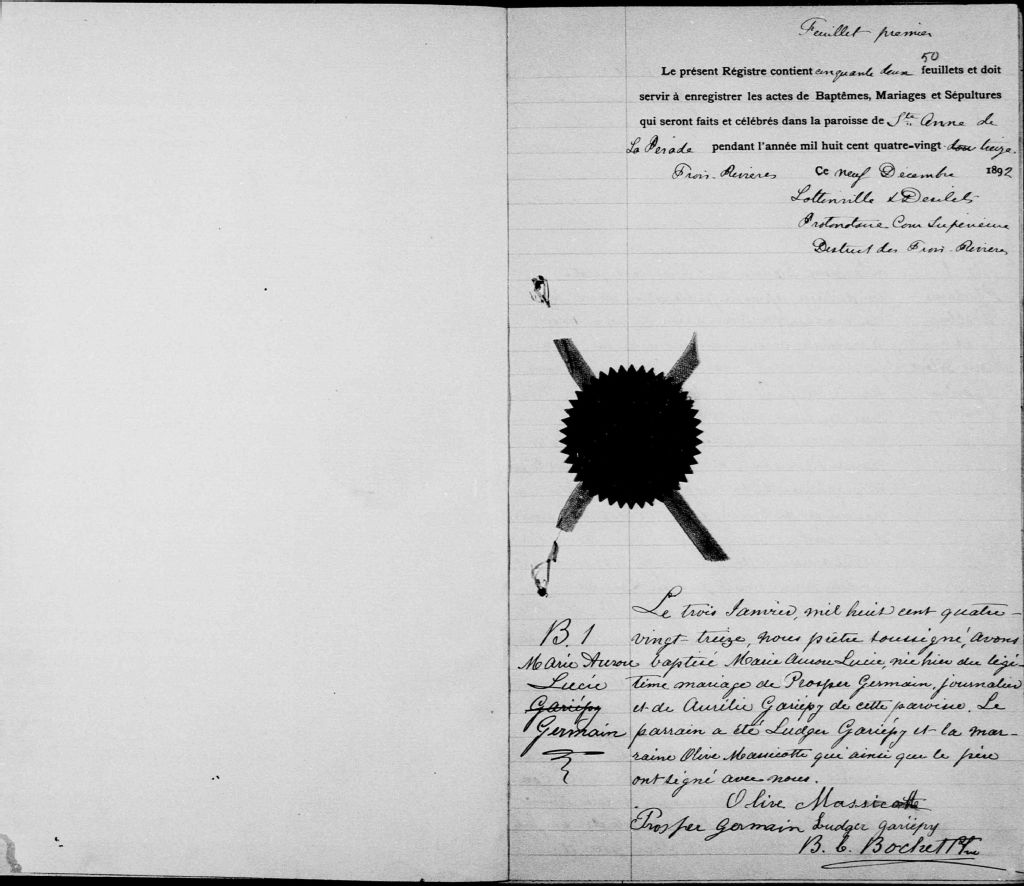 Feuillet premier
50
Le présent Régistre contient cinquante deux feuillets et doit
servir à enregistrer les actes de Baptêmes, Mariages et Sépultures
qui seront faits et célébrés dans la paroisse de Ste Anne de
La Pérade pendant l'année mil huit cent quatre-vingt treize.
Trois-Rivières Ce neuf Décembre 1892
Lottinville & Desilets
Protonotaire Cour Supérieure
District des Trois-Rivières
Le trois Janvier, mil huit cent quatre-
B. 1 vingt-treize, nous prêtre soussigné, avons
Marie Aurore baptisé Marie Aurore Lucie, née hier du légi-
Lucie time mariage de Prosper Germain, journalier
Gariépy et de Aurélie Gariépy de cette paroisse. Le
Germain parrain a été Ludger Gariépy et la mar-
raine Olive Massicotte qui ainsi que le père
ont signé avec nous.
Olive Massicotte
Prosper Germain Ludger Gariépy
B. C. Bochet Ptre